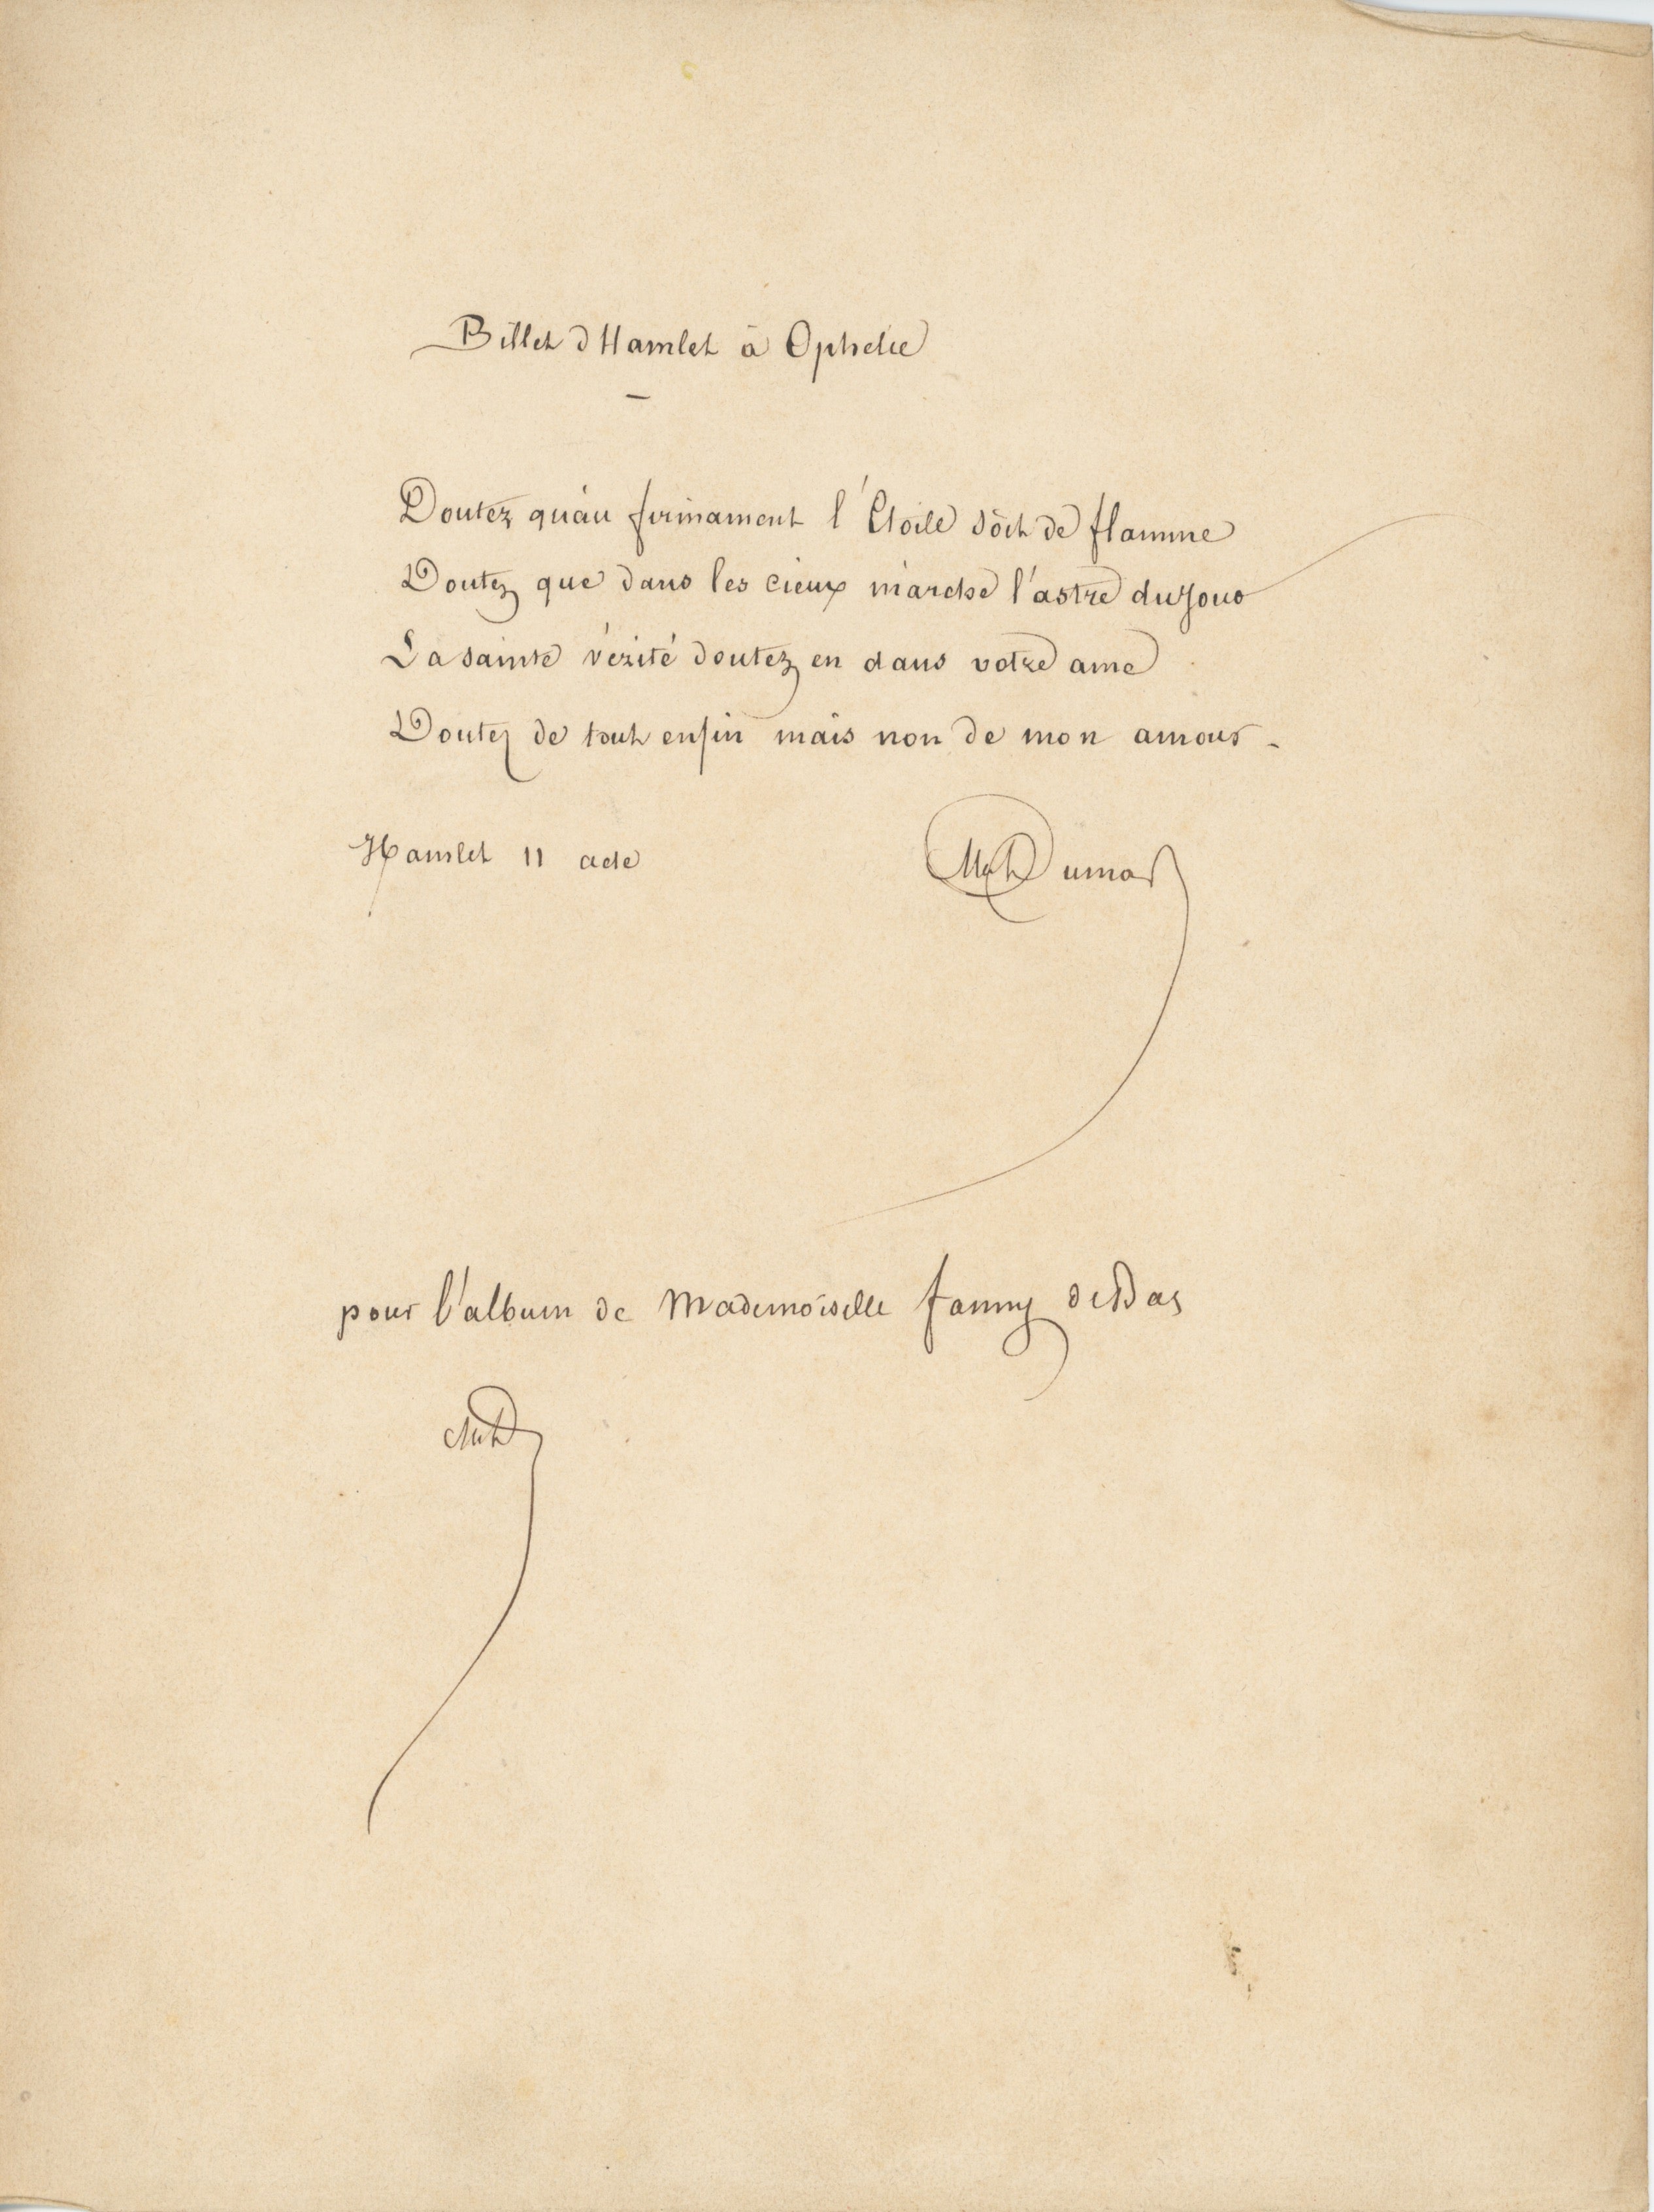 Billet d Hamlet à Ophelie
Doutez qu'au firmament l'Étoile soit de flamme
Doutez que dans les cieux marche l'astre du Jour
La sainte vérité doutez en dans votre ame
Doutez de tout enfin mais non de mon amour -
Hamlet II acte
Dumas
pour l'album de Mademoiselle fanny